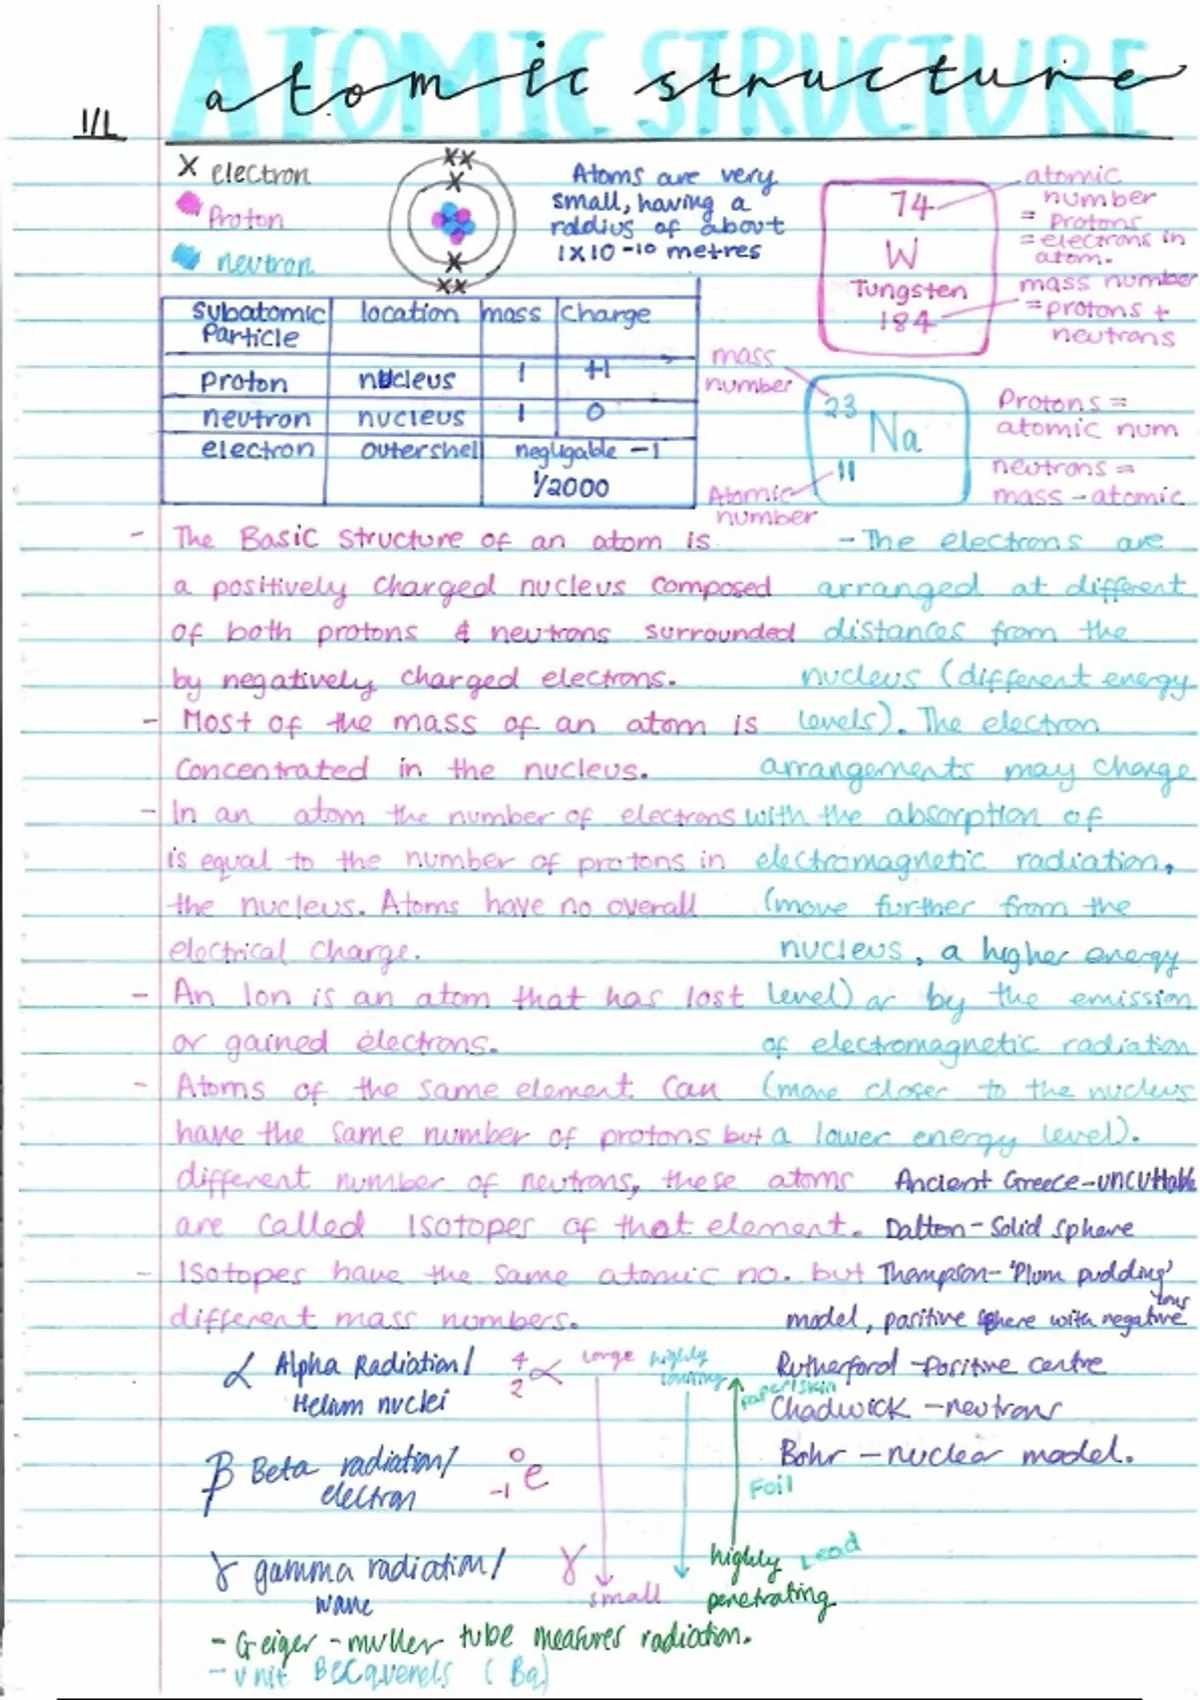 ATOMIC STRUCTURE
atomic structure
1/2
X electron
Proton
neutron
Atoms are very
small, having a
raddius of about
1x10-10 metres
74
W
Tungsten
184
atomic
number
= Protons
= electrons in
atom.
mass number
= protons +
neutrons
subatomic Particle | location | mass | Charge
proton | nucleus | 1 | +1
neutron | nucleus | 1 | 0
electron | outershell | negligable -1
1/2000
mass
number
23
Na
11
Atomic
number
Protons =
atomic num
neutrons =
mass - atomic
- The Basic Structure of an atom is
a positively charged nucleus composed
of both protons & neutrons surrounded
by negatively charged electrons.
- Most of the mass of an atom is
concentrated in the nucleus.
- In an atom the number of electrons
is equal to the number of protons in
the nucleus. Atoms have no overall
electrical charge.
- An Ion is an atom that has lost
or gained electrons.
- Atoms of the same element can
have the same number of protons but
different number of neutrons, these atoms
are called Isotopes of that element.
- Isotopes have the same atomic no. but
different mass numbers.
- The electrons are
arranged at different
distances from the
nucleus (different energy
levels). The electron
arrangements may change
with the absorption of
electromagnetic radiation,
(move further from the
nucleus, a higher energy
level) or by the emission
of electromagnetic radiation
(move closer to the nucleus
a lower energy level).
Ancient Greece - uncuttable
Dalton - Solid sphere
Thompson - 'Plum pudding'
model, positive sphere with negative
Rutherford - Positive centre
Chadwick - neutrons
Bohr - nuclear model.
α Alpha Radiation/
Helium nuclei
4
2 α
β Beta radiation/
electron
0
-1 e
γ gamma radiation/
wave
γ
large
small
highly
ionising
paper/skin
Foil
Lead
highly
penetrating
- Geiger-muller tube measures radiation.
- unit Becquerels (Bq)